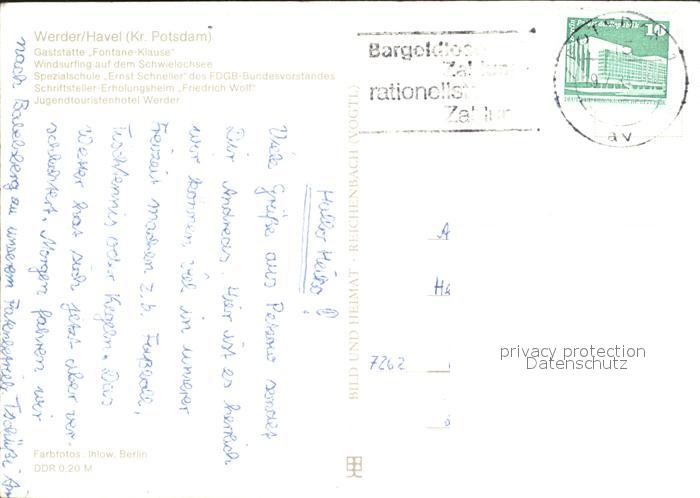 Werder/Havel (Kr. Potsdam)
Gaststätte „Fontane-Klause"
Windsurfing auf dem Schwielochsee
Spezialschule „Ernst Schneller" des FDGB-Bundesvorstandes
Schriftsteller-Erholungsheim „Friedrich Wolf"
Jugendtouristenhotel Werder
Bargeldlose
Zahlun
rationellst
Zahlun
10
av
Hallo Heiko!
Viele Grüße aus Petzow sendet
Dir Andreas. Hier ist es herrlich
wir können viel in unserer
Freizeit machen z.b. Fußball,
Tischtennis oder Kegeln. Das
Wetter hat sich jetzt aber ver-
schlechtert. Morgen fahren wir
nach Babelsberg zu unserem Patenbetrieb. Tschüßi
BILD UND HEIMAT · REICHENBACH (VOGTL)
A
7262
privacy protection
Datenschutz
Farbfotos. Ihlow, Berlin
DDR 0,20 M